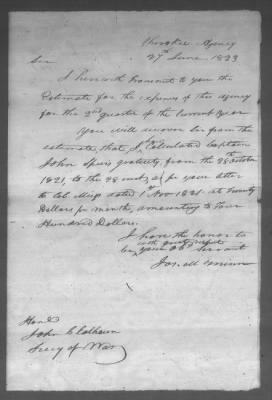 Cherokee Agency
27th June 1823
Sir
I herewith transmit to you the
Estimate for the expenses of this agency
for the 3rd quarter of the current year
You will discover from the
estimate, that I, Calculated Captain
John Spiers gratuity, from the 28 October
1821, to the 28 as pr your letter
to Col Meigs dated 1st Nov 1821 at Twenty
Dollars pr month, amounting to Four
Hundred Dollars.
I have the honor to
be with great respect
your Obt Servant
Jos. McMinn
Honl
John C Calhoun
Secy of War